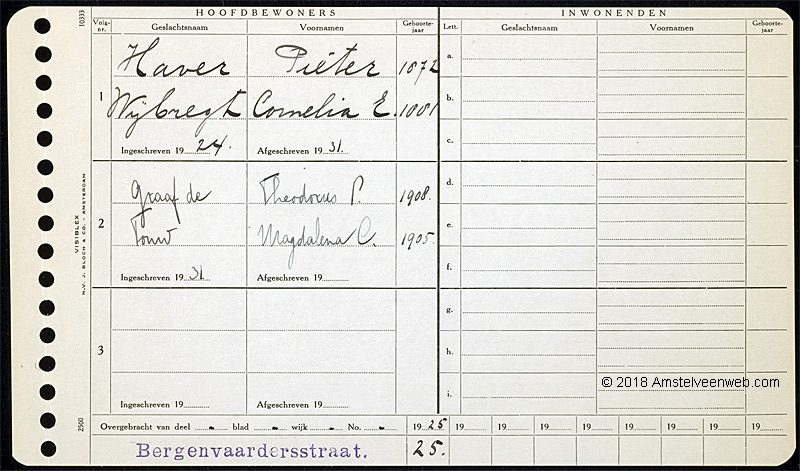 HOOFDBEWONERS INWONENDEN
Volg-nr. Geslachtsnaam Voornamen Geboorte-jaar Lett. Geslachtsnaam Voornamen Geboorte-jaar
Haver Pieter 1872 a.
1 Wijbregt Cornelia E. 1881 b.
Ingeschreven 1924. Afgeschreven 1931. c.
Graaf de Theodorus P. 1908. d.
2 Touw Magdalena C. 1905. e.
Ingeschreven 1931 Afgeschreven 19 f.
g.
3 h.
Ingeschreven 19 Afgeschreven 19 i.
© 2018 Amstelveenweb.com
Overgebracht van deel - blad - wijk - No. - 1925 19 19 19 19 19 19 19 19
Bergenvaardersstraat. 25.
10333
VISIBLEX
N.V. J. BLOCH & CO. - AMSTERDAM
2500